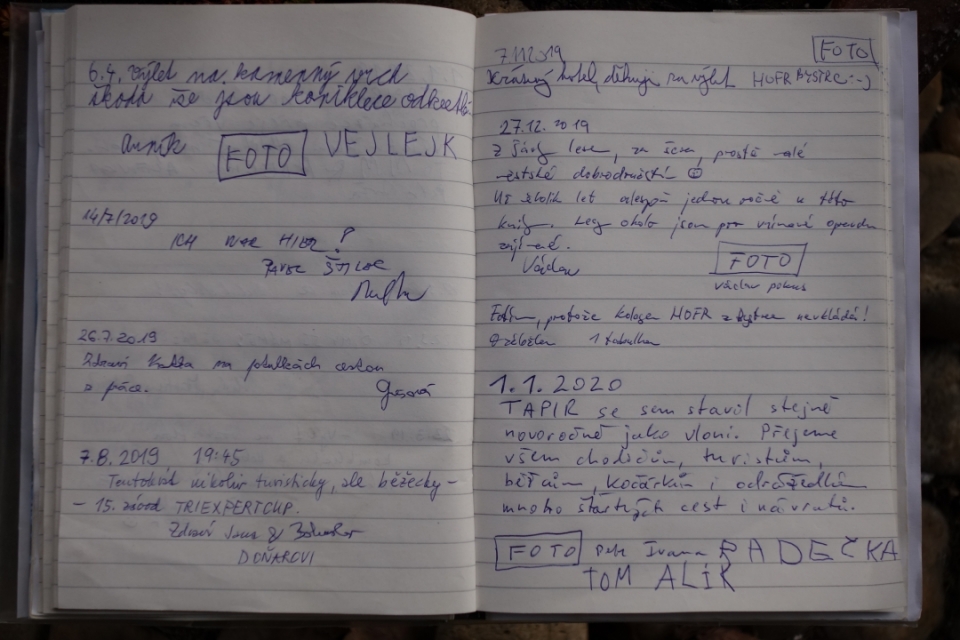 6.4. Výlet na kamenný vrch
škoda že jsou koniklece odkvetlé.
FOTO VEJLEJK
14/7/2019
ICH WAR HIER!
26.7.2019
Zdraví na potulkách cestou
z práce.
7.8.2019 19:45
Tentokrát nikoliv turisticky, ale běžecky –
– 15. závod TRIEXPERTCUP.
Zdraví Jana &
DOŇAROVI
7.11.2019 FOTO
Krásný hotel, děkuji za výlet HOFR BYSTRC :-)
27.12.2019
lese, za šera, prostě malé
městské dobrodružství ☺
Už několik let alespoň jednou ročně u této
knihy. jsem pro opravdu
Václav
FOTO
václav pokus
Fotím, protože kolega HOFR z Bystrce nevkládá!
1 tabulka
1.1.2020
TAPIR se sem stavil stejně
novoročně jako vloni. Přejeme
všem chodcům, turistům,
běžcům, kočárkům i odrážedlům
mnoho šťastných cest i návratů.
FOTO Petr Ivana RADEČKA
TOM ALÍK